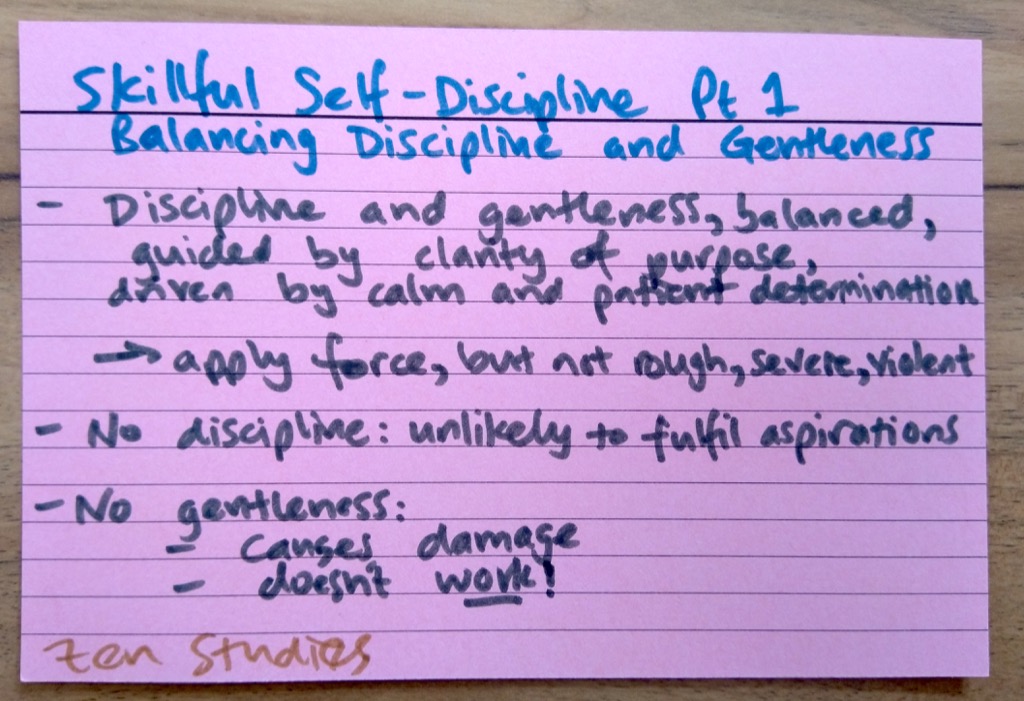 Skillful Self-Discipline Pt 1
Balancing Discipline and Gentleness
- Discipline and gentleness, balanced,
guided by clarity of purpose,
driven by calm and patient determination
→ apply force, but not rough, severe, violent
- No discipline: unlikely to fulfil aspirations
- No gentleness:
- causes damage
- doesn't work!
Zen Studies